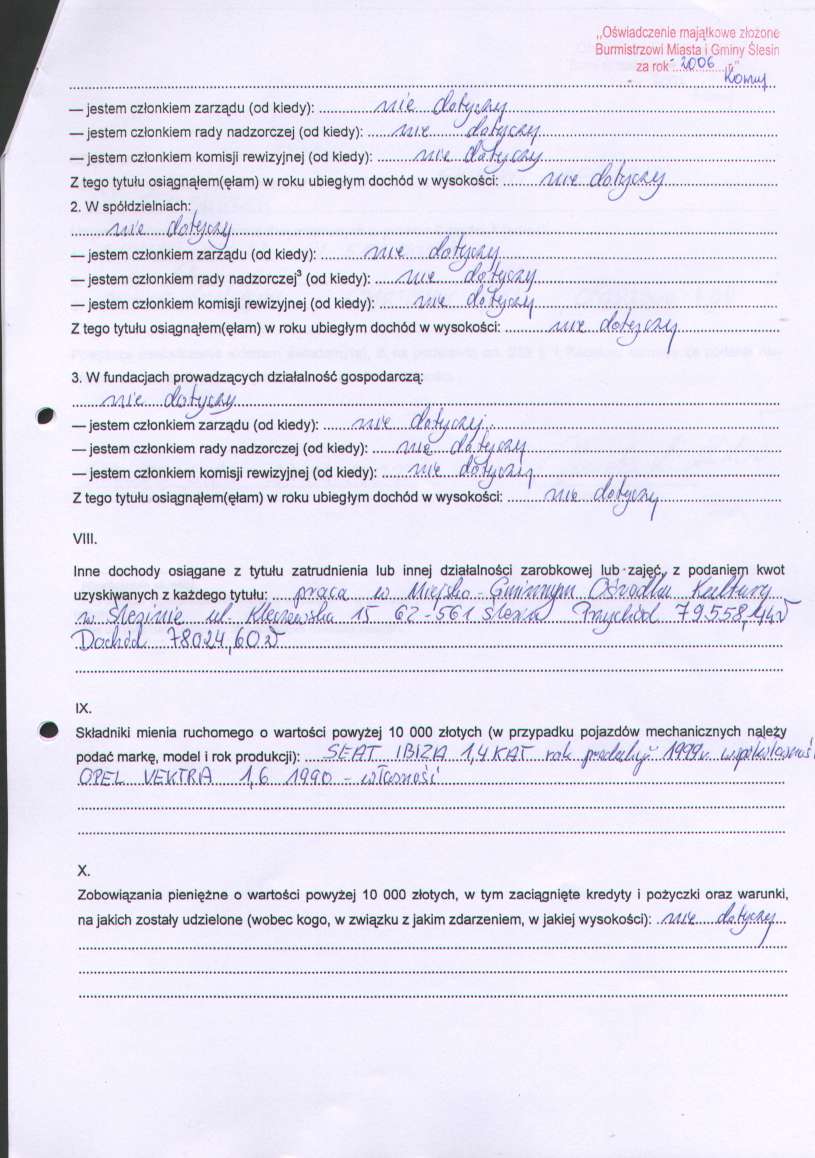 „Oświadczenie majątkowe złożone
Burmistrzowi Miasta i Gminy Ślesin
za rok 2006 r."
— jestem członkiem zarządu (od kiedy): nie dotyczy
— jestem członkiem rady nadzorczej (od kiedy): nie dotyczy
— jestem członkiem komisji rewizyjnej (od kiedy): nie dotyczy
Z tego tytułu osiągnąłem(ęłam) w roku ubiegłym dochód w wysokości: nie dotyczy
2. W spółdzielniach:
nie dotyczy
— jestem członkiem zarządu (od kiedy): nie dotyczy
— jestem członkiem rady nadzorczej³ (od kiedy): nie dotyczy
— jestem członkiem komisji rewizyjnej (od kiedy): nie dotyczy
Z tego tytułu osiągnąłem(ęłam) w roku ubiegłym dochód w wysokości: nie dotyczy
3. W fundacjach prowadzących działalność gospodarczą:
nie dotyczy
— jestem członkiem zarządu (od kiedy): nie dotyczy
— jestem członkiem rady nadzorczej (od kiedy): nie dotyczy
— jestem członkiem komisji rewizyjnej (od kiedy): nie dotyczy
Z tego tytułu osiągnąłem(ęłam) w roku ubiegłym dochód w wysokości: nie dotyczy
VIII.
Inne dochody osiągane z tytułu zatrudnienia lub innej działalności zarobkowej lub zajęć, z podaniem kwot
uzyskiwanych z każdego tytułu: praca w Miejsko-Gminnym Ośrodku Kultury
w Ślesinie ul. Kleczewska 15 62-561 Ślesin Przychód 79.558,44 zł
Dochód 78024,60 zł
IX.
Składniki mienia ruchomego o wartości powyżej 10 000 złotych (w przypadku pojazdów mechanicznych należy
podać markę, model i rok produkcji): SEAT IBIZA 1,4 KAT rok produkcji 1999 r. współwłasność
OPEL VEKTRA 1,6 1990 - własność
X.
Zobowiązania pieniężne o wartości powyżej 10 000 złotych, w tym zaciągnięte kredyty i pożyczki oraz warunki,
na jakich zostały udzielone (wobec kogo, w związku z jakim zdarzeniem, w jakiej wysokości): nie dotyczy